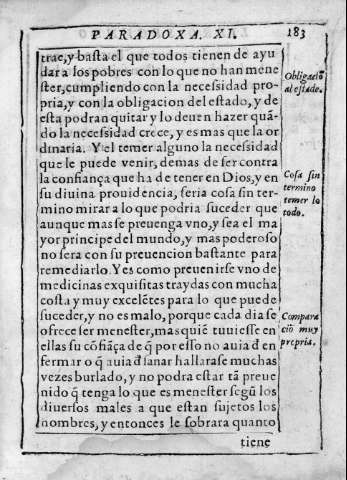 PARADOXA. XI. 183
trae, y basta el que todos tienen de ayu
dar a los pobres con lo que no han mene
ster, cumpliendo con la necessidad pro-
pria, y con la obligacion del estado, y de
esta podran quitar y lo deuen hazer quã-
do la necessidad crece, y es mas que la or
dinaria. Y el temer alguno la necessidad
que le puede venir, demas de ser contra
la confiança que ha de tener en Dios, y en
su diuina prouidencia, seria cosa sin ter-
mino mirar a lo que podria suceder que
aunque mas se preuenga vno, y sea el ma
yor principe del mundo, y mas poderoso
no sera con su preuencion bastante para
remediarlo. Y es como preuenirse vno de
medicinas exquisitas traydas con mucha
costa y muy excelẽtes para lo que puede
suceder, y no es malo, porque cada dia se
ofrece ser menester, mas quiẽ tuuiesse en
ellas su cõfiãça de q̃ por esso no auia d̃ en
fermar o q̃ auia d̃ sanar hallarase muchas
vezes burlado, y no podra estar tã preue
nido q̃ tenga lo que es menester segũ los
diuersos males a que estan sujetos los
hombres, y entonces le sobrara quanto
tiene
Obligaciõ
al estado.
Cosa sin
termino
temer lo
todo.
Compara
ciõ muy
propria.